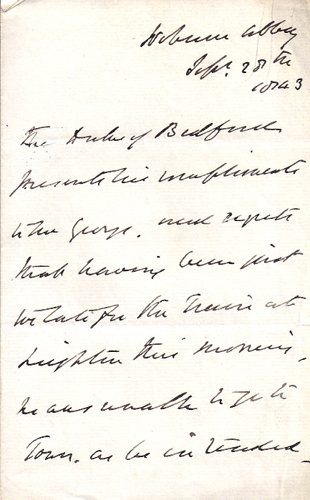 Woburn Abbey
Sept. 28th
1843
The Duke of Bedford
presents his compliments
to Mr George, and regrets
that having been just
too late for the Train at
Leighton this morning,
he was unable to go to
Town, as he intended